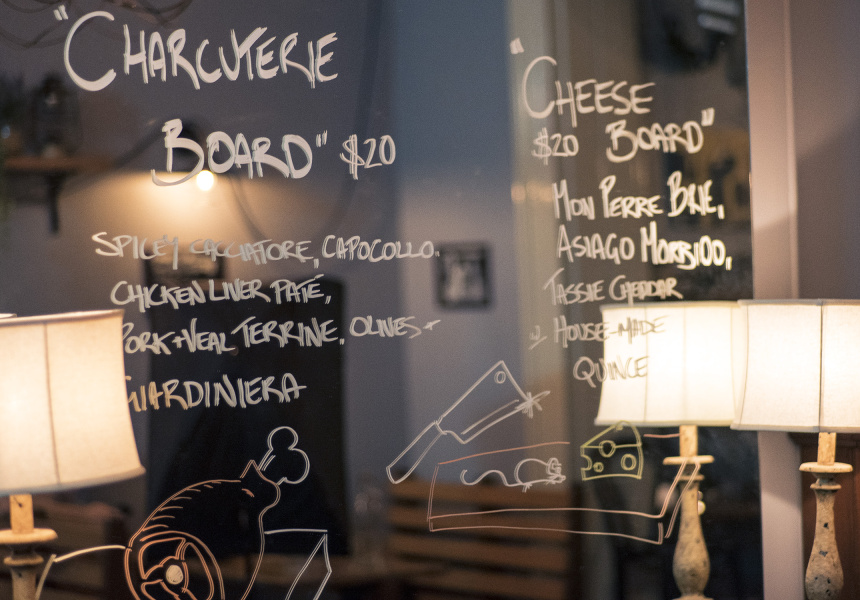 "CHARCUTERIE
BOARD" $20
SPICEY CACCIATORE, CAPOCOLLO,
CHICKEN LIVER PATE,
PORK+VEAL TERRINE, OLIVES +
GIARDINIERA
"CHEESE
$20 BOARD"
MON PERRE BRIE,
ASIAGO MORBIDO,
TASSIE CHEDDAR
HOUSE-MADE
QUINCE